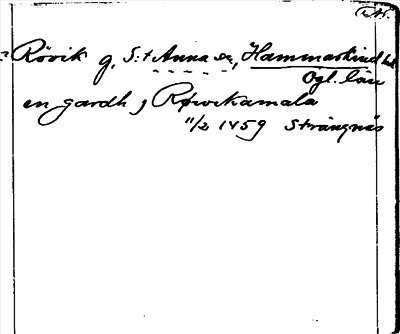 Rövik g, S:t Anna sn, Hammarkind hd
Ögl. län
en gardh j Røwekamala
11/2 1459 Strängnäs